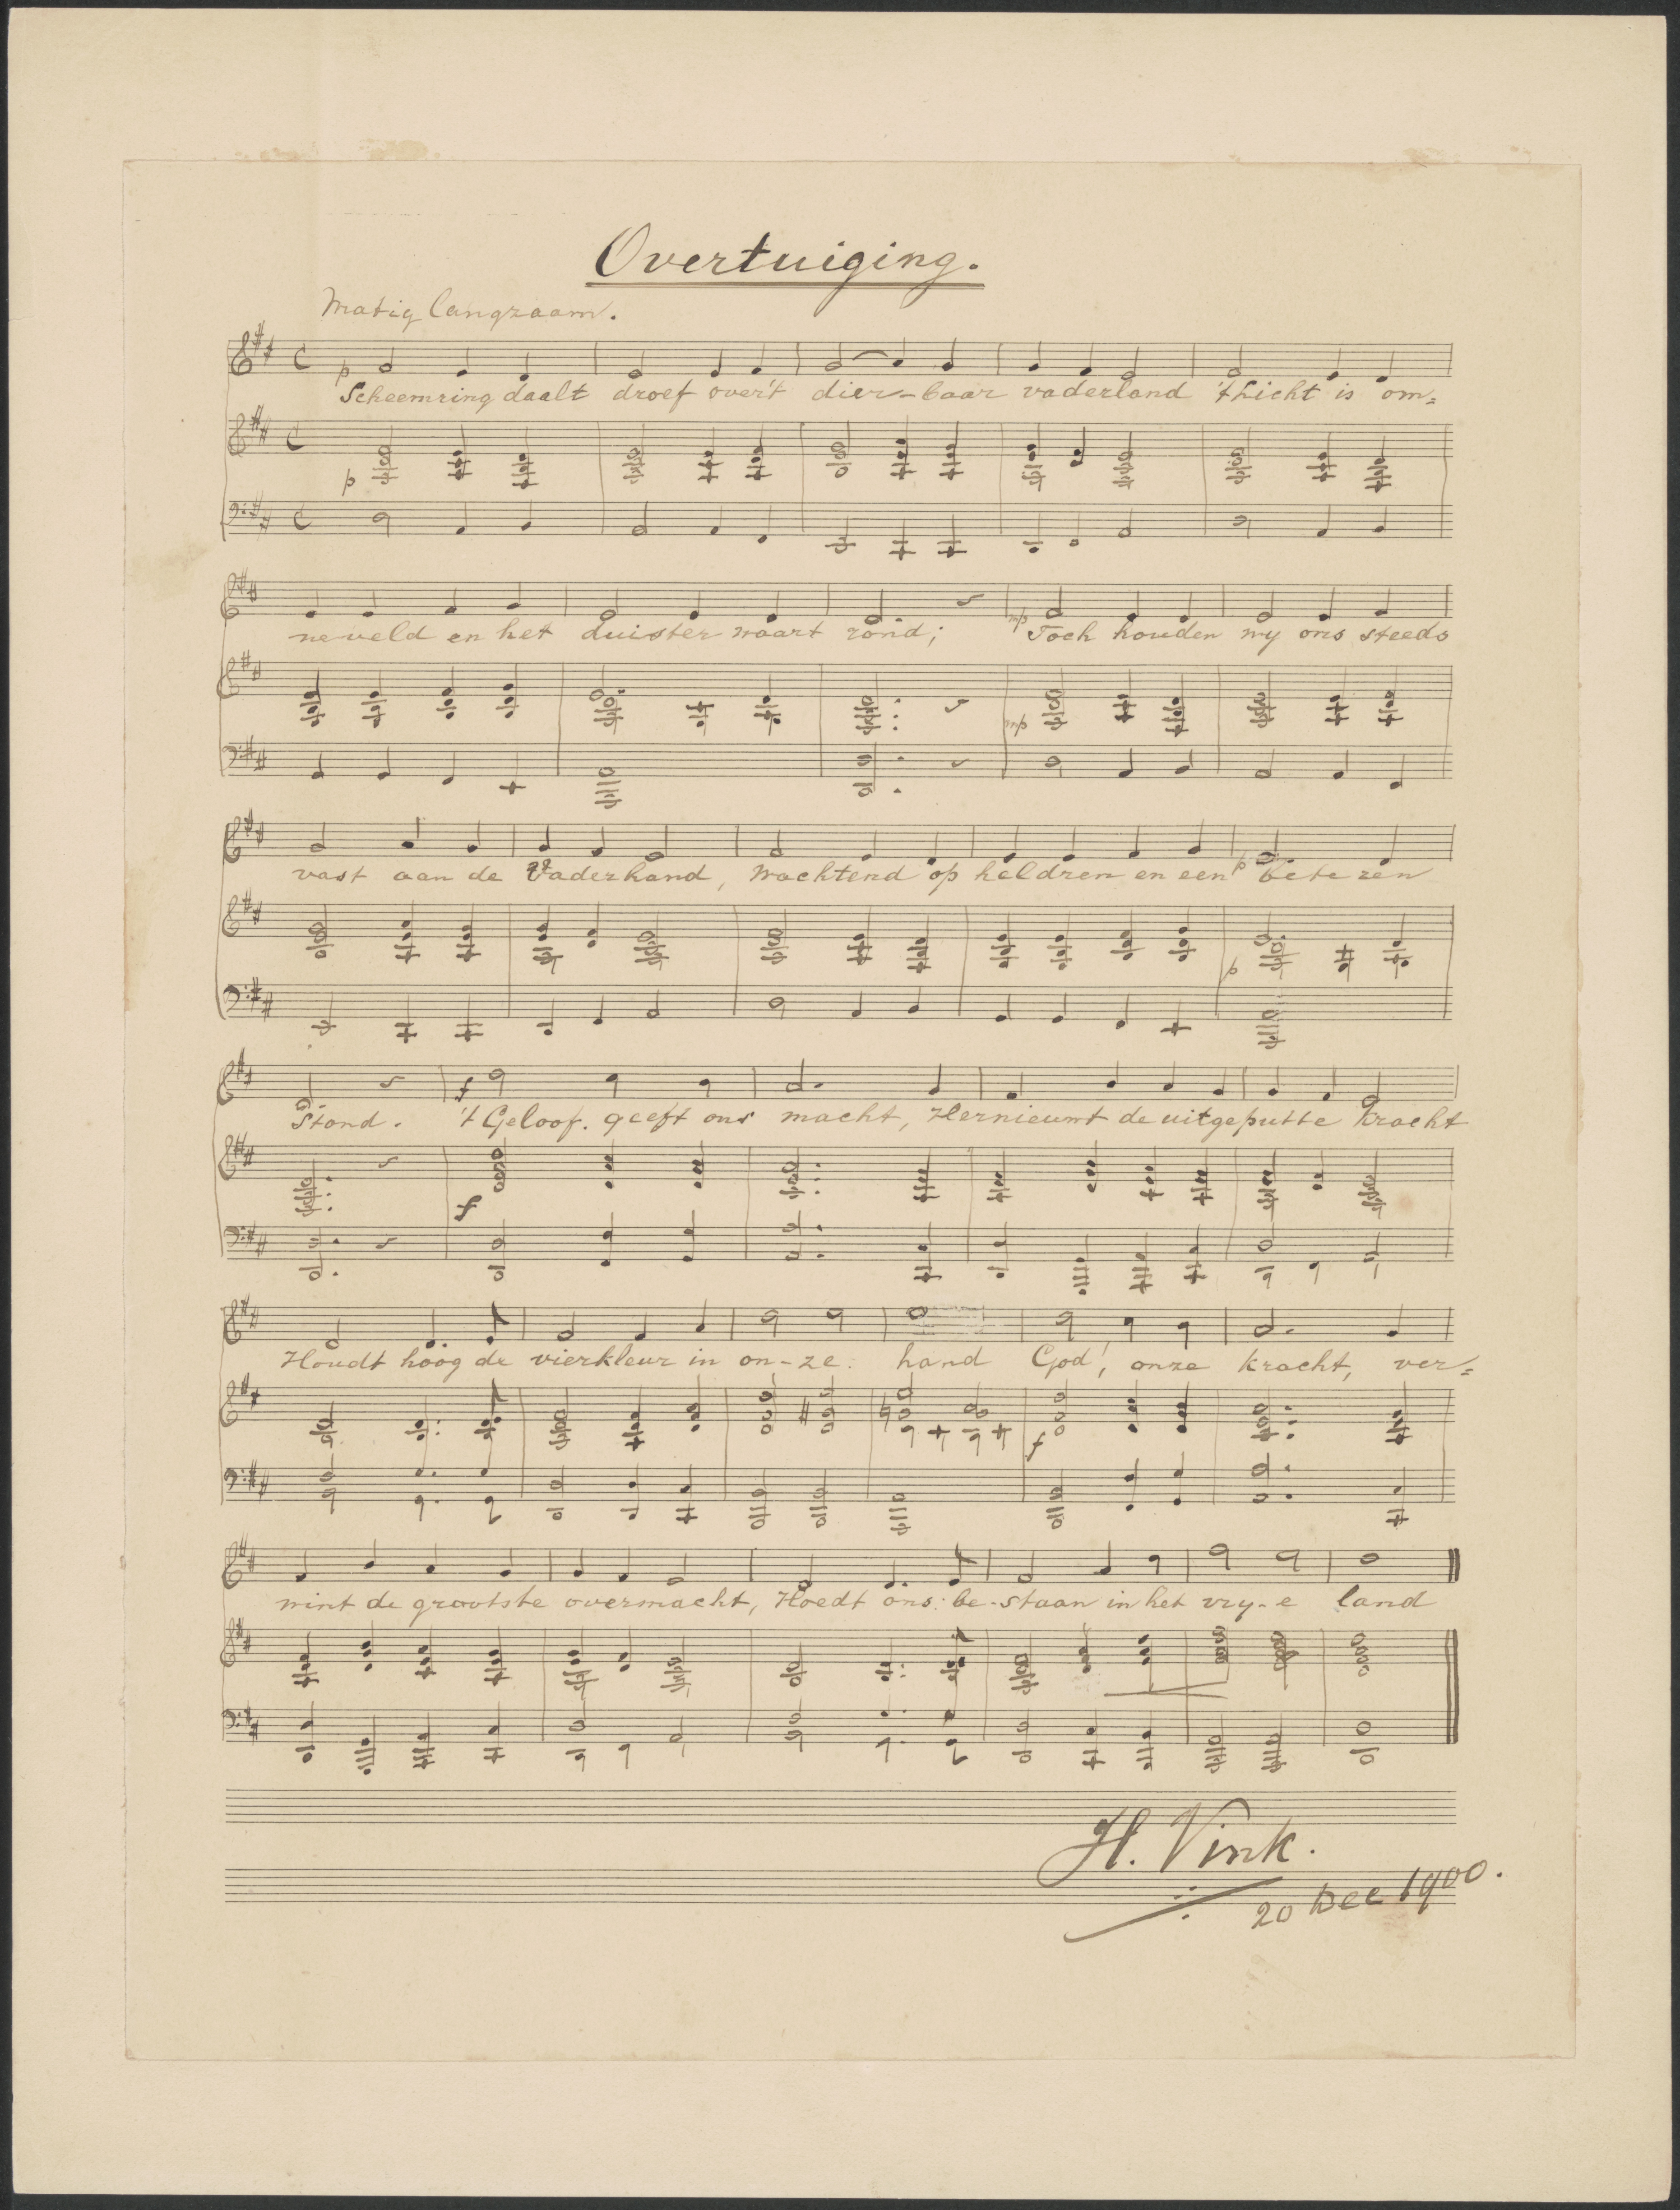 Overtuiging.
Matig langzaam.
p
Scheemring daalt droef over't dier-baar vaderland 't Licht is om=
p
neveld en het duister waart rond; mp Toch houden wy ons steeds
mp
vast aan de Vaderhand, Wachtend op heldren en een p beteren
p
Stond. f 't Geloof. geeft ons macht, Hernieuwt de uitgeputte kracht
f
Houdt hoog de vierkleur in on-ze hand God! onze kracht, ver=
f
wint de grootste overmacht, Hoedt ons be-staan in het vry-e land
H. Vink.
20 Dec 1900.